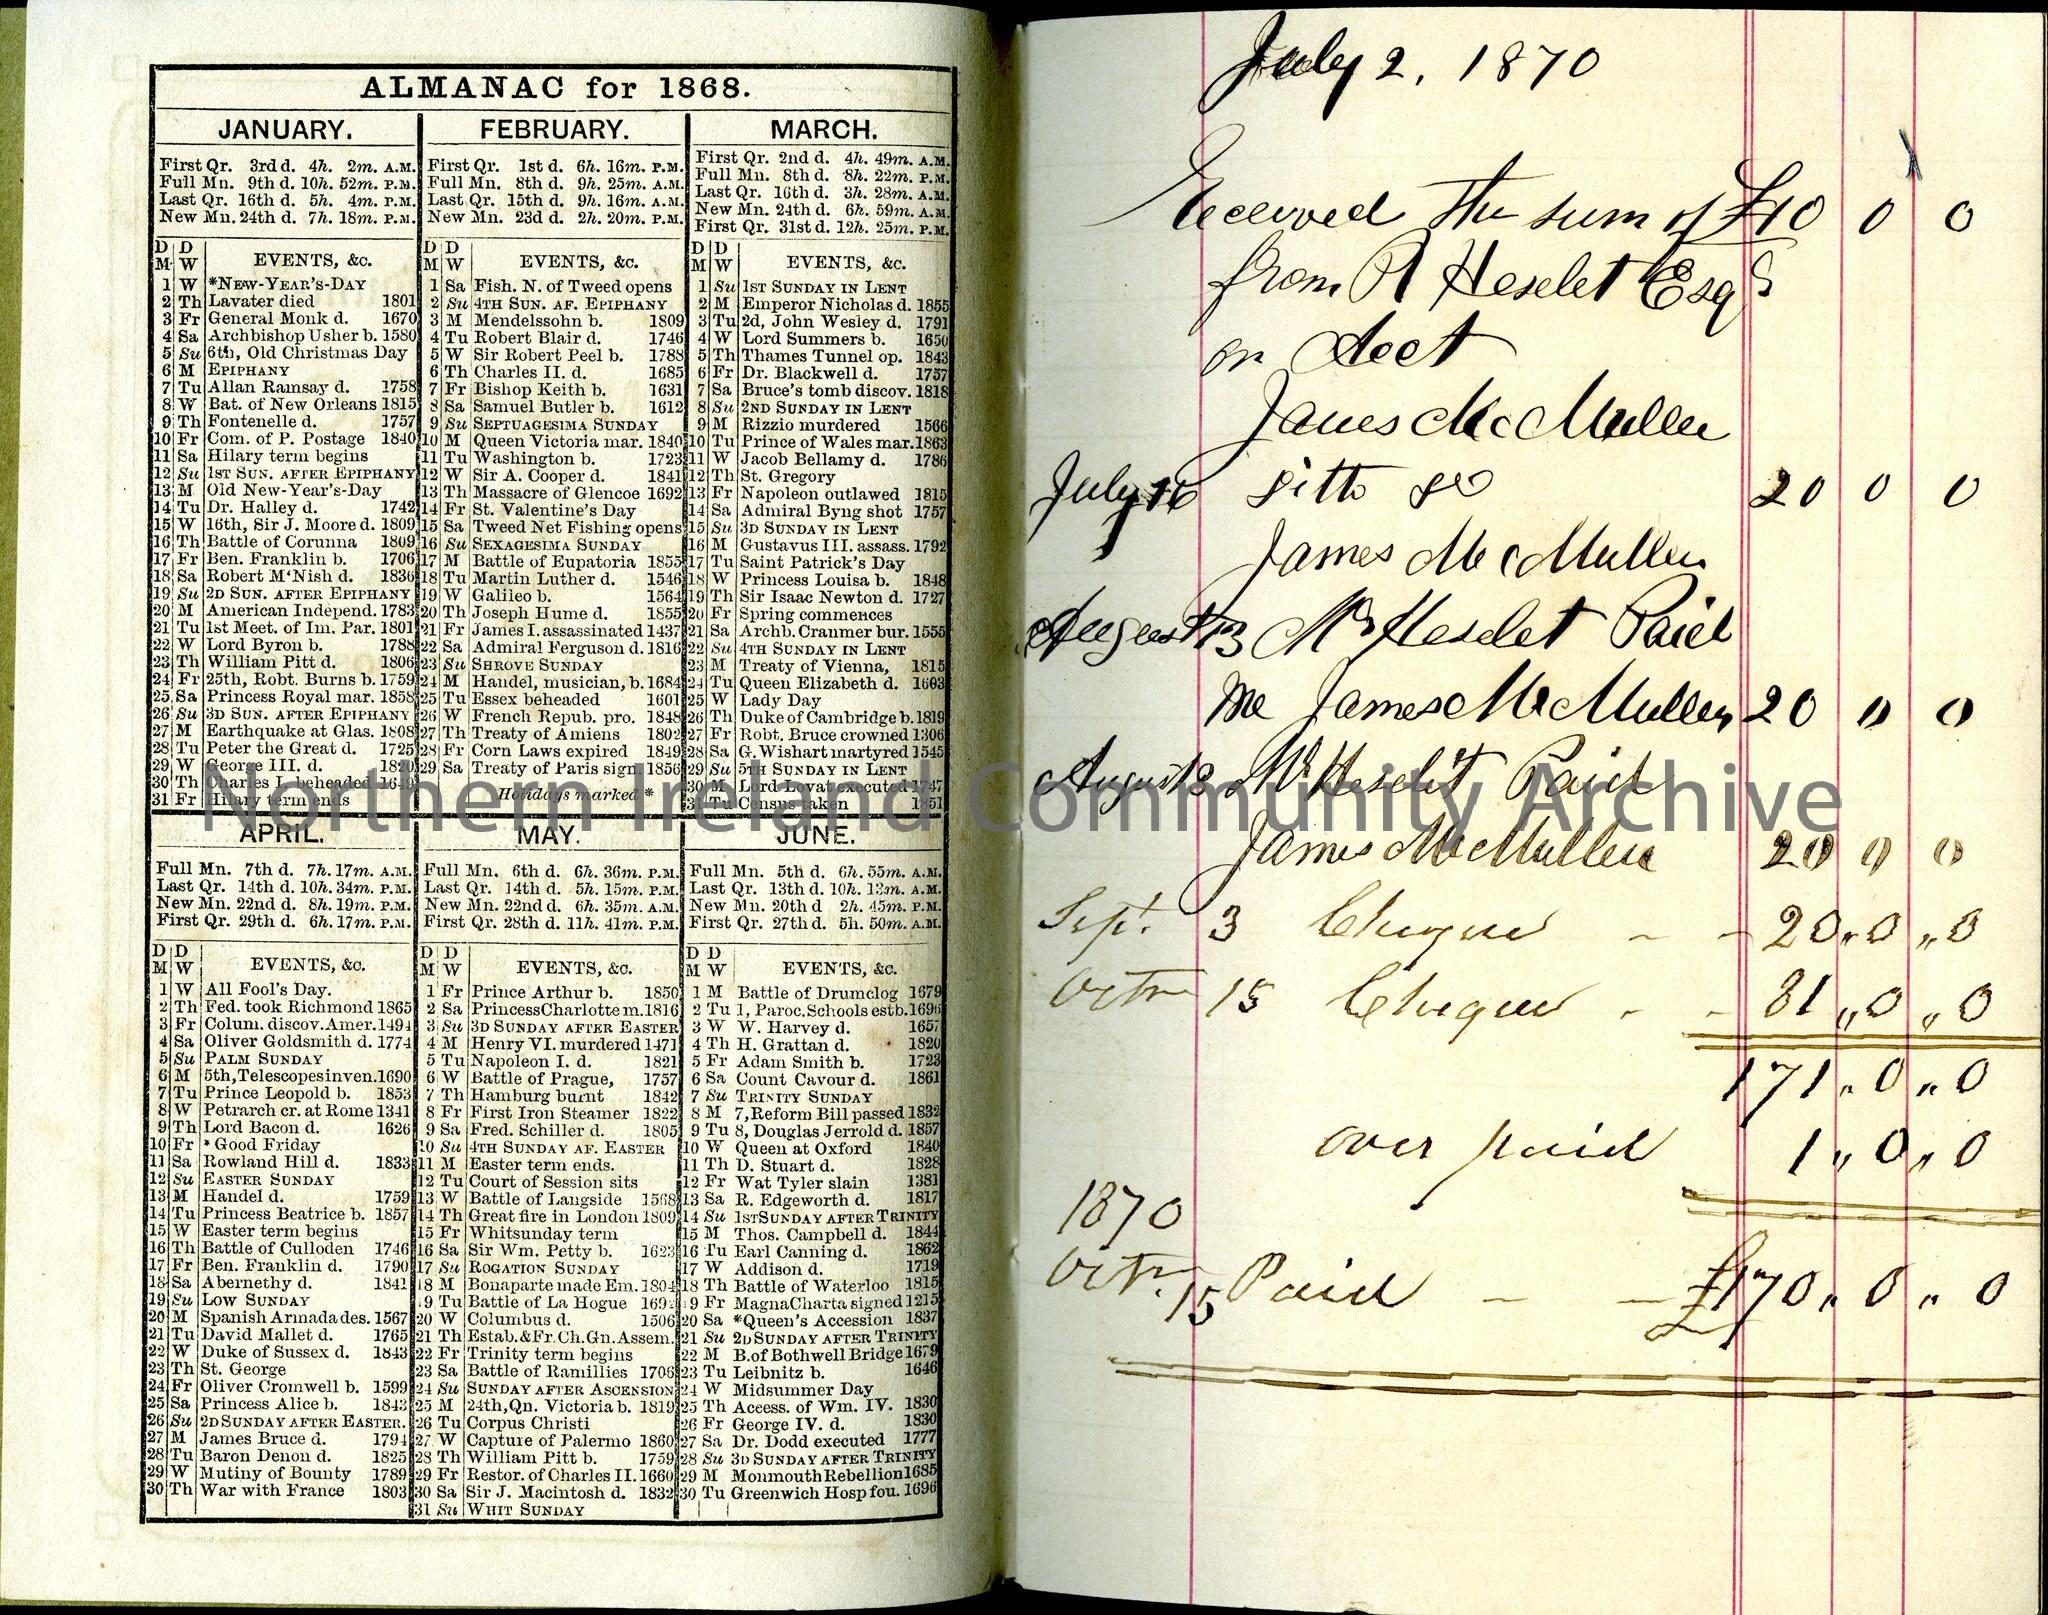 ALMANAC for 1868.
JANUARY.
First Qr. 3rd d. 4h. 2m. A.M.
Full Mn. 9th d. 10h. 52m. P.M.
Last Qr. 16th d. 5h. 4m. P.M.
New Mn. 24th d. 7h. 18m. P.M.
D D
M W EVENTS, &c.
1 W *NEW-YEAR'S-DAY
2 Th Lavater died 1801
3 Fr General Monk d. 1670
4 Sa Archbishop Usher b. 1580
5 Su 6th, Old Christmas Day
6 M EPIPHANY
7 Tu Allan Ramsay d. 1758
8 W Bat. of New Orleans 1815
9 Th Fontenelle d. 1757
10 Fr Com. of P. Postage 1840
11 Sa Hilary term begins
12 Su 1ST SUN. AFTER EPIPHANY
13 M Old New-Year's-Day
14 Tu Dr. Halley d. 1742
15 W 16th, Sir J. Moore d. 1809
16 Th Battle of Corunna 1809
17 Fr Ben. Franklin b. 1706
18 Sa Robert M'Nish d. 1836
19 Su 2D SUN. AFTER EPIPHANY
20 M American Independ. 1783
21 Tu 1st Meet. of Im. Par. 1801
22 W Lord Byron b. 1788
23 Th William Pitt d. 1806
24 Fr 25th, Robt. Burns b. 1759
25 Sa Princess Royal mar. 1858
26 Su 3D SUN. AFTER EPIPHANY
27 M Earthquake at Glas. 1808
28 Tu Peter the Great d. 1725
29 W George III. d. 1820
30 Th Charles I. beheaded 1649
31 Fr Hilary term ends
FEBRUARY.
First Qr. 1st d. 6h. 16m. P.M.
Full Mn. 8th d. 9h. 25m. A.M.
Last Qr. 15th d. 9h. 16m. A.M.
New Mn. 23d d. 2h. 20m. P.M.
D D
M W EVENTS, &c.
1 Sa Fish. N. of Tweed opens
2 Su 4TH SUN. AF. EPIPHANY
3 M Mendelssohn b. 1809
4 Tu Robert Blair d. 1746
5 W Sir Robert Peel b. 1788
6 Th Charles II. d. 1685
7 Fr Bishop Keith b. 1631
8 Sa Samuel Butler b. 1612
9 Su SEPTUAGESIMA SUNDAY
10 M Queen Victoria mar. 1840
11 Tu Washington b. 1723
12 W Sir A. Cooper d. 1841
13 Th Massacre of Glencoe 1692
14 Fr St. Valentine's Day
15 Sa Tweed Net Fishing opens
16 Su SEXAGESIMA SUNDAY
17 M Battle of Eupatoria 1855
18 Tu Martin Luther d. 1546
19 W Galileo b. 1564
20 Th Joseph Hume d. 1855
21 Fr James I. assassinated 1437
22 Sa Admiral Ferguson d. 1816
23 Su SHROVE SUNDAY
24 M Handel, musician, b. 1684
25 Tu Essex beheaded 1601
26 W French Repub. pro. 1848
27 Th Treaty of Amiens 1802
28 Fr Corn Laws expired 1849
29 Sa Treaty of Paris sign. 1856
Holidays marked *
MARCH.
First Qr. 2nd d. 4h. 49m. A.M.
Full Mn. 8th d. 8h. 22m. P.M.
Last Qr. 16th d. 3h. 28m. A.M.
New Mn. 24th d. 6h. 59m. A.M.
First Qr. 31st d. 12h. 25m. P.M.
D D
M W EVENTS, &c.
1 Su 1ST SUNDAY IN LENT
2 M Emperor Nicholas d. 1855
3 Tu 2d, John Wesley d. 1791
4 W Lord Summers b. 1650
5 Th Thames Tunnel op. 1843
6 Fr Dr. Blackwell d. 1757
7 Sa Bruce's tomb discov. 1818
8 Su 2ND SUNDAY IN LENT
9 M Rizzio murdered 1566
10 Tu Prince of Wales mar. 1863
11 W Jacob Bellamy d. 1786
12 Th St. Gregory
13 Fr Napoleon outlawed 1815
14 Sa Admiral Byng shot 1757
15 Su 3D SUNDAY IN LENT
16 M Gustavus III. assass. 1792
17 Tu Saint Patrick's Day
18 W Princess Louisa b. 1848
19 Th Sir Isaac Newton d. 1727
20 Fr Spring commences
21 Sa Archb. Cranmer bur. 1555
22 Su 4TH SUNDAY IN LENT
23 M Treaty of Vienna, 1815
24 Tu Queen Elizabeth d. 1603
25 W Lady Day
26 Th Duke of Cambridge b. 1819
27 Fr Robt. Bruce crowned 1306
28 Sa G. Wishart martyred 1545
29 Su 5TH SUNDAY IN LENT
30 M Lord Lovat executed 1747
31 Tu Census taken 1851
APRIL.
Full Mn. 7th d. 7h. 17m. A.M.
Last Qr. 14th d. 10h. 34m. P.M.
New Mn. 22nd d. 8h. 19m. P.M.
First Qr. 29th d. 6h. 17m. P.M.
D D
M W EVENTS, &c.
1 W All Fool's Day.
2 Th Fed. took Richmond 1865
3 Fr Colum. discov. Amer. 1494
4 Sa Oliver Goldsmith d. 1774
5 Su PALM SUNDAY
6 M 5th, Telescopes inven. 1690
7 Tu Prince Leopold b. 1853
8 W Petrarch cr. at Rome 1341
9 Th Lord Bacon d. 1626
10 Fr *Good Friday
11 Sa Rowland Hill d. 1833
12 Su EASTER SUNDAY
13 M Handel d. 1759
14 Tu Princess Beatrice b. 1857
15 W Easter term begins
16 Th Battle of Culloden 1746
17 Fr Ben. Franklin d. 1790
18 Sa Abernethy d. 1841
19 Su LOW SUNDAY
20 M Spanish Armada des. 1567
21 Tu David Mallet d. 1765
22 W Duke of Sussex d. 1843
23 Th St. George
24 Fr Oliver Cromwell b. 1599
25 Sa Princess Alice b. 1843
26 Su 2D SUNDAY AFTER EASTER.
27 M James Bruce d. 1794
28 Tu Baron Denon d. 1825
29 W Mutiny of Bounty 1789
30 Th War with France 1803
MAY.
Full Mn. 6th d. 6h. 36m. P.M.
Last Qr. 14th d. 5h. 15m. P.M.
New Mn. 22nd d. 6h. 35m. A.M.
First Qr. 28th d. 11h. 41m. P.M.
D D
M W EVENTS, &c.
1 Fr Prince Arthur b. 1850
2 Sa Princess Charlotte m. 1816
3 Su 3D SUNDAY AFTER EASTER
4 M Henry VI. murdered 1471
5 Tu Napoleon I. d. 1821
6 W Battle of Prague, 1757
7 Th Hamburg burnt 1842
8 Fr First Iron Steamer 1822
9 Sa Fred. Schiller d. 1805
10 Su 4TH SUNDAY AF. EASTER
11 M Easter term ends.
12 Tu Court of Session sits
13 W Battle of Langside 1568
14 Th Great fire in London 1809
15 Fr Whitsunday term
16 Sa Sir Wm. Petty b. 1623
17 Su ROGATION SUNDAY
18 M Bonaparte made Em. 1804
19 Tu Battle of La Hogue 1692
20 W Columbus d. 1506
21 Th Estab. & Fr. Ch. Gn. Assem.
22 Fr Trinity term begins
23 Sa Battle of Ramillies 1706
24 Su SUNDAY AFTER ASCENSION
25 M 24th, Qn. Victoria b. 1819
26 Tu Corpus Christi
27 W Capture of Palermo 1860
28 Th William Pitt b. 1759
29 Fr Restor. of Charles II. 1660
30 Sa Sir J. Macintosh d. 1832
31 Su WHIT SUNDAY
JUNE.
Full Mn. 5th d. 6h. 55m. A.M.
Last Qr. 13th d. 10h. 13m. A.M.
New Mn. 20th d 2h. 45m. P.M.
First Qr. 27th d. 5h. 50m. A.M.
D D
M W EVENTS, &c.
1 M Battle of Drumclog 1679
2 Tu 1, Paroc. Schools estb. 1696
3 W W. Harvey d. 1657
4 Th H. Grattan d. 1820
5 Fr Adam Smith b. 1723
6 Sa Count Cavour d. 1861
7 Su TRINITY SUNDAY
8 M 7, Reform Bill passed 1832
9 Tu 8, Douglas Jerrold d. 1857
10 W Queen at Oxford 1840
11 Th D. Stuart d. 1828
12 Fr Wat Tyler slain 1381
13 Sa R. Edgeworth d. 1817
14 Su 1ST SUNDAY AFTER TRINITY
15 M Thos. Campbell d. 1844
16 Tu Earl Canning d. 1862
17 W Addison d. 1719
18 Th Battle of Waterloo 1815
19 Fr Magna Charta signed 1215
20 Sa *Queen's Accession 1837
21 Su 2D SUNDAY AFTER TRINITY
22 M B. of Bothwell Bridge 1679
23 Tu Leibnitz b. 1646
24 W Midsummer Day
25 Th Access. of Wm. IV. 1830
26 Fr George IV. d. 1830
27 Sa Dr. Dodd executed 1777
28 Su 3D SUNDAY AFTER TRINITY
29 M Monmouth Rebellion 1685
30 Tu Greenwich Hosp fou. 1696
July 2, 1870
Received the sum of £40 0 0
from R Heselet Esqr
on Acct
James McMullen
July 16 ditto do 20 0 0
James McMullen
August 13 Mr Heselet Paid
me James McMullen 20 0 0
August Mr Heselet Paid
James McMullen 20 0 0
Sept. 3 Cheque - - 20 " 0 " 0
Octr 15 Cheque - - 81 " 0 " 0
171 " 0 " 0
over paid 1 " 0 " 0
1870
Octr. 15 Paid - - £170 " 0 " 0
Northern Ireland Community Archive